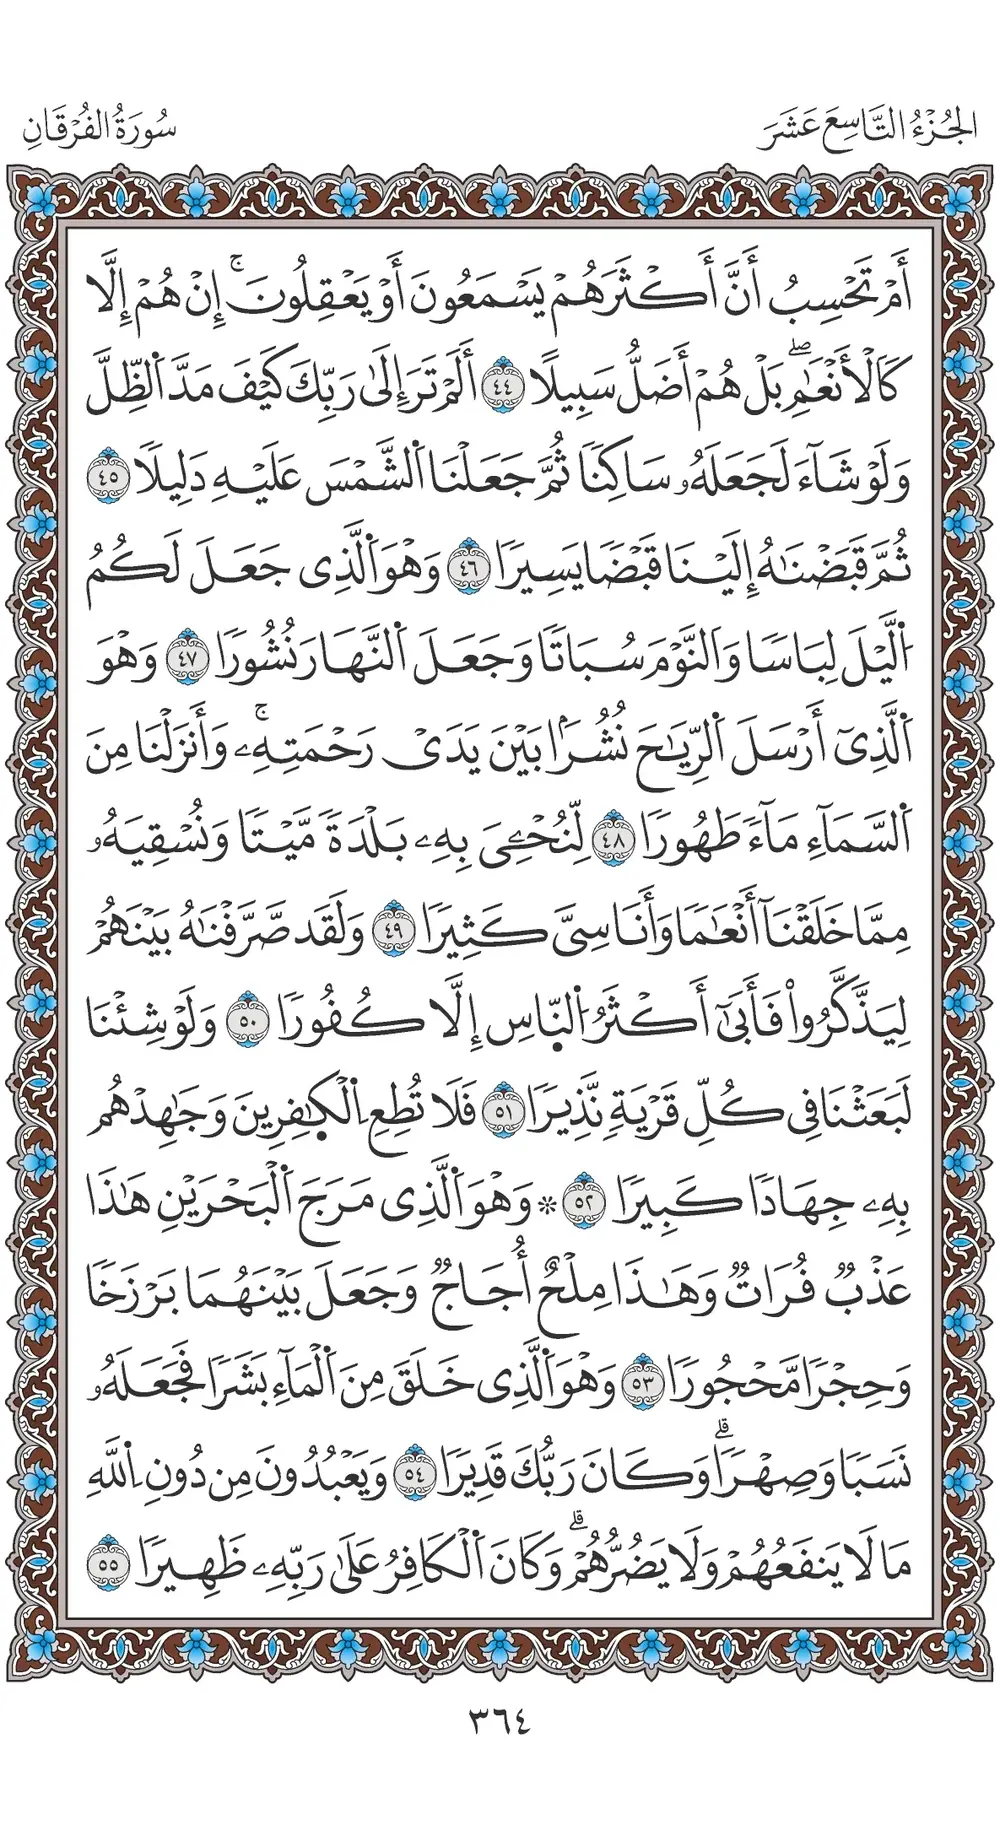 الجُزْءُ التَّاسِعَ عَشَرَ
سُورَةُ الفُرْقَانِ
أَمْ تَحْسِبُ أَنَّ أَكْثَرَهُمْ يَسْمَعُونَ أَوْ يَعْقِلُونَۚ إِنْ هُمْ إِلَّا
كَالْأَنْعَٰمِۖ بَلْ هُمْ أَضَلُّ سَبِيلًا ٤٤ أَلَمْ تَرَ إِلَىٰ رَبِّكَ كَيْفَ مَدَّ ٱلظِّلَّ
وَلَوْ شَآءَ لَجَعَلَهُۥ سَاكِنًا ثُمَّ جَعَلْنَا ٱلشَّمْسَ عَلَيْهِ دَلِيلًا ٤٥
ثُمَّ قَبَضْنَٰهُ إِلَيْنَا قَبْضًا يَسِيرًا ٤٦ وَهْوَ ٱلَّذِى جَعَلَ لَكُمُ
ٱلَّيْلَ لِبَاسًا وَٱلنَّوْمَ سُبَاتًا وَجَعَلَ ٱلنَّهَارَ نُشُورًا ٤٧ وَهْوَ
ٱلَّذِىٓ أَرْسَلَ ٱلرِّيَٰحَ نُشُرًۢا بَيْنَ يَدَىْ رَحْمَتِهِۦۚ وَأَنزَلْنَا مِنَ
ٱلسَّمَآءِ مَآءً طَهُورًا ٤٨ لِّنُحْـِۧىَ بِهِۦ بَلْدَةً مَّيْتًا وَنُسْقِيَهُۥ
مِمَّا خَلَقْنَآ أَنْعَٰمًا وَأَنَاسِىَّ كَثِيرًا ٤٩ وَلَقَد صَّرَّفْنَٰهُ بَيْنَهُمْ
لِيَذَّكَّرُوا۟ فَأَبَىٰٓ أَكْثَرُ ٱلنَّاسِ إِلَّا كُفُورًا ٥٠ وَلَوْ شِئْنَا
لَبَعَثْنَا فِى كُلِّ قَرْيَةٍ نَّذِيرًا ٥١ فَلَا تُطِعِ ٱلْكَٰفِرِينَ وَجَٰهِدْهُم
بِهِۦ جِهَادًا كَبِيرًا ٥٢ * وَهْوَ ٱلَّذِى مَرَجَ ٱلْبَحْرَيْنِ هَٰذَا
عَذْبٌ فُرَاتٌ وَهَٰذَا مِلْحٌ أُجَاجٌ وَجَعَلَ بَيْنَهُمَا بَرْزَخًا
وَحِجْرًا مَّحْجُورًا ٥٣ وَهْوَ ٱلَّذِى خَلَقَ مِنَ ٱلْمَآءِ بَشَرًا فَجَعَلَهُۥ
نَسَبًا وَصِهْرًاۗ وَكَانَ رَبُّكَ قَدِيرًا ٥٤ وَيَعْبُدُونَ مِن دُونِ ٱللَّهِ
مَا لَا يَنفَعُهُمْ وَلَا يَضُرُّهُمْۗ وَكَانَ ٱلْكَافِرُ عَلَىٰ رَبِّهِۦ ظَهِيرًا ٥٥
٣٦٤